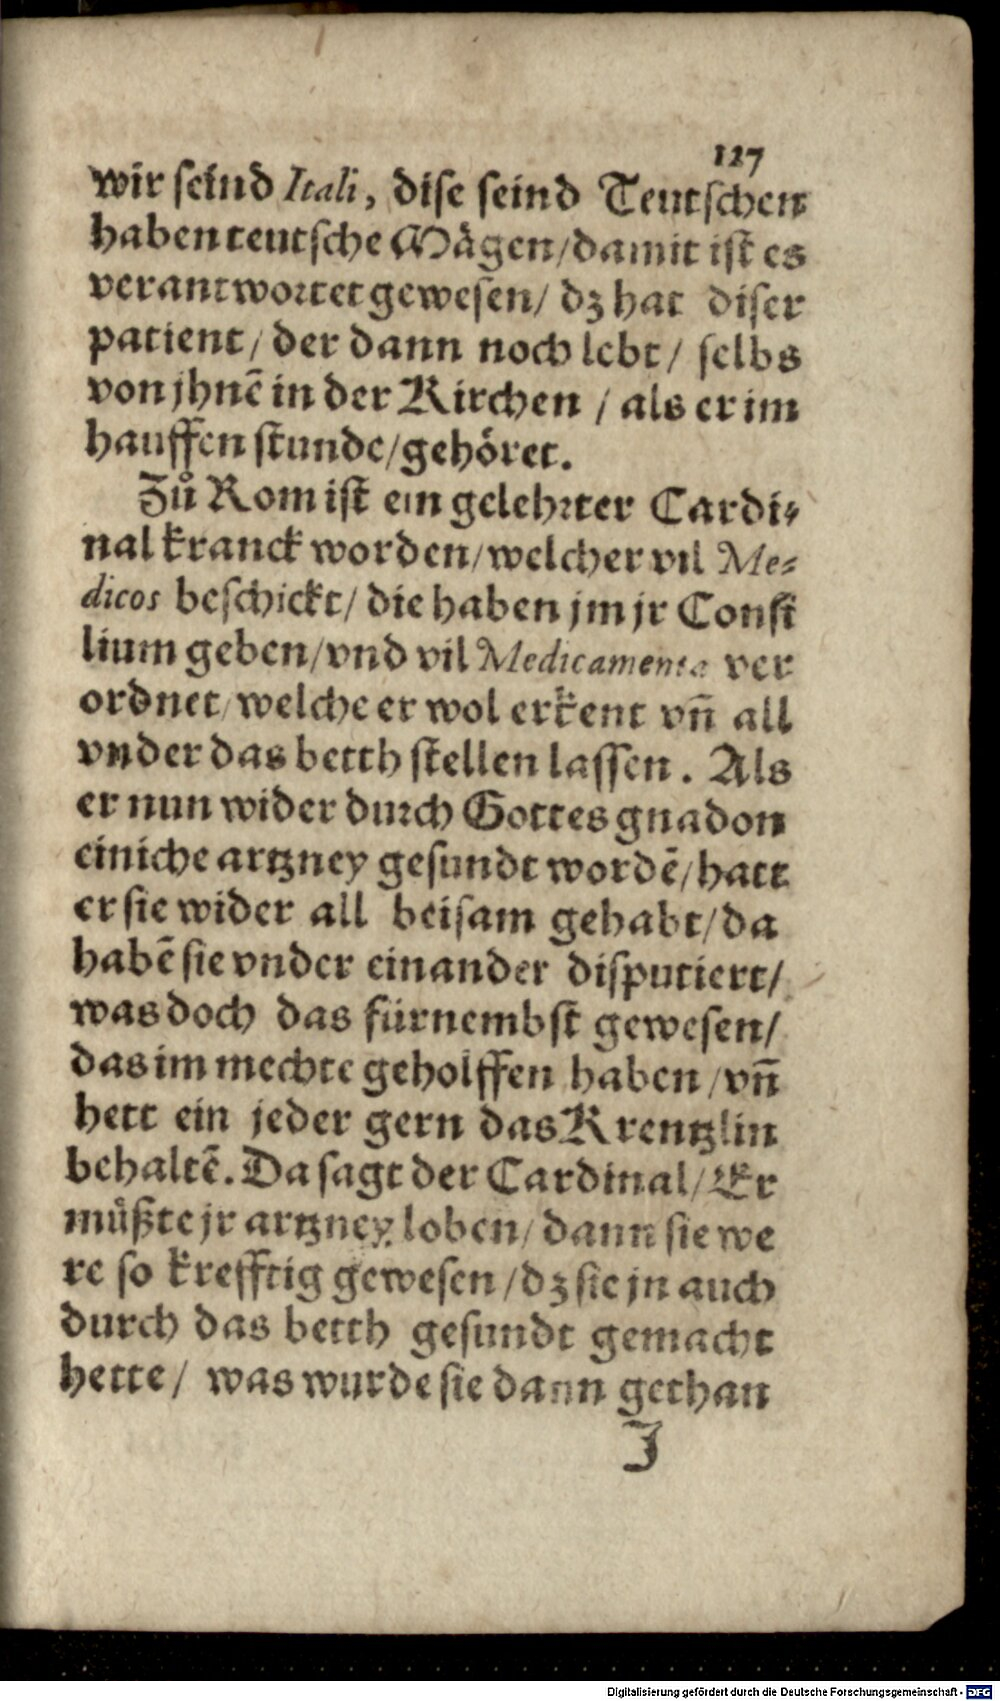 127
wir seind Itali, dise seind Teutschen
haben teutsche Mägen/damit ist es
verantwortet gewesen/ dz hat diser
patient/ der dann noch lebt/ selbs
von jhnē in der Kirchen / als er im
hauffen stunde/gehöret.
Zů Rom ist ein gelehrter Cardi⸗
nal kranck worden/welcher vil Me⸗
dicos beschickt/ die haben jm jr Consi
lium geben/vnd vil Medicamenta ver
ordnet/welche er wol erkent vn̄ all
vnder das betth stellen lassen. Als
er nun wider durch Gottes gnad on
einiche artzney gesundt wordē/hatt
er sie wider all beisam gehabt/da
habē sie vnder einander disputiert/
was doch das fürnembst gewesen/
das im mechte geholffen haben/vn̄
hett ein jeder gern das Krentzlin
behaltē. Da sagt der Cardinal/Er
můßte jr artzney loben/dann sie we
re so krefftig gewesen/dz sie jn auch
durch das betth gesundt gemacht
hette/ was wurde sie dann gethan
J
Digitalisierung gefördert durch die Deutsche Forschungsgemeinschaft - DFG